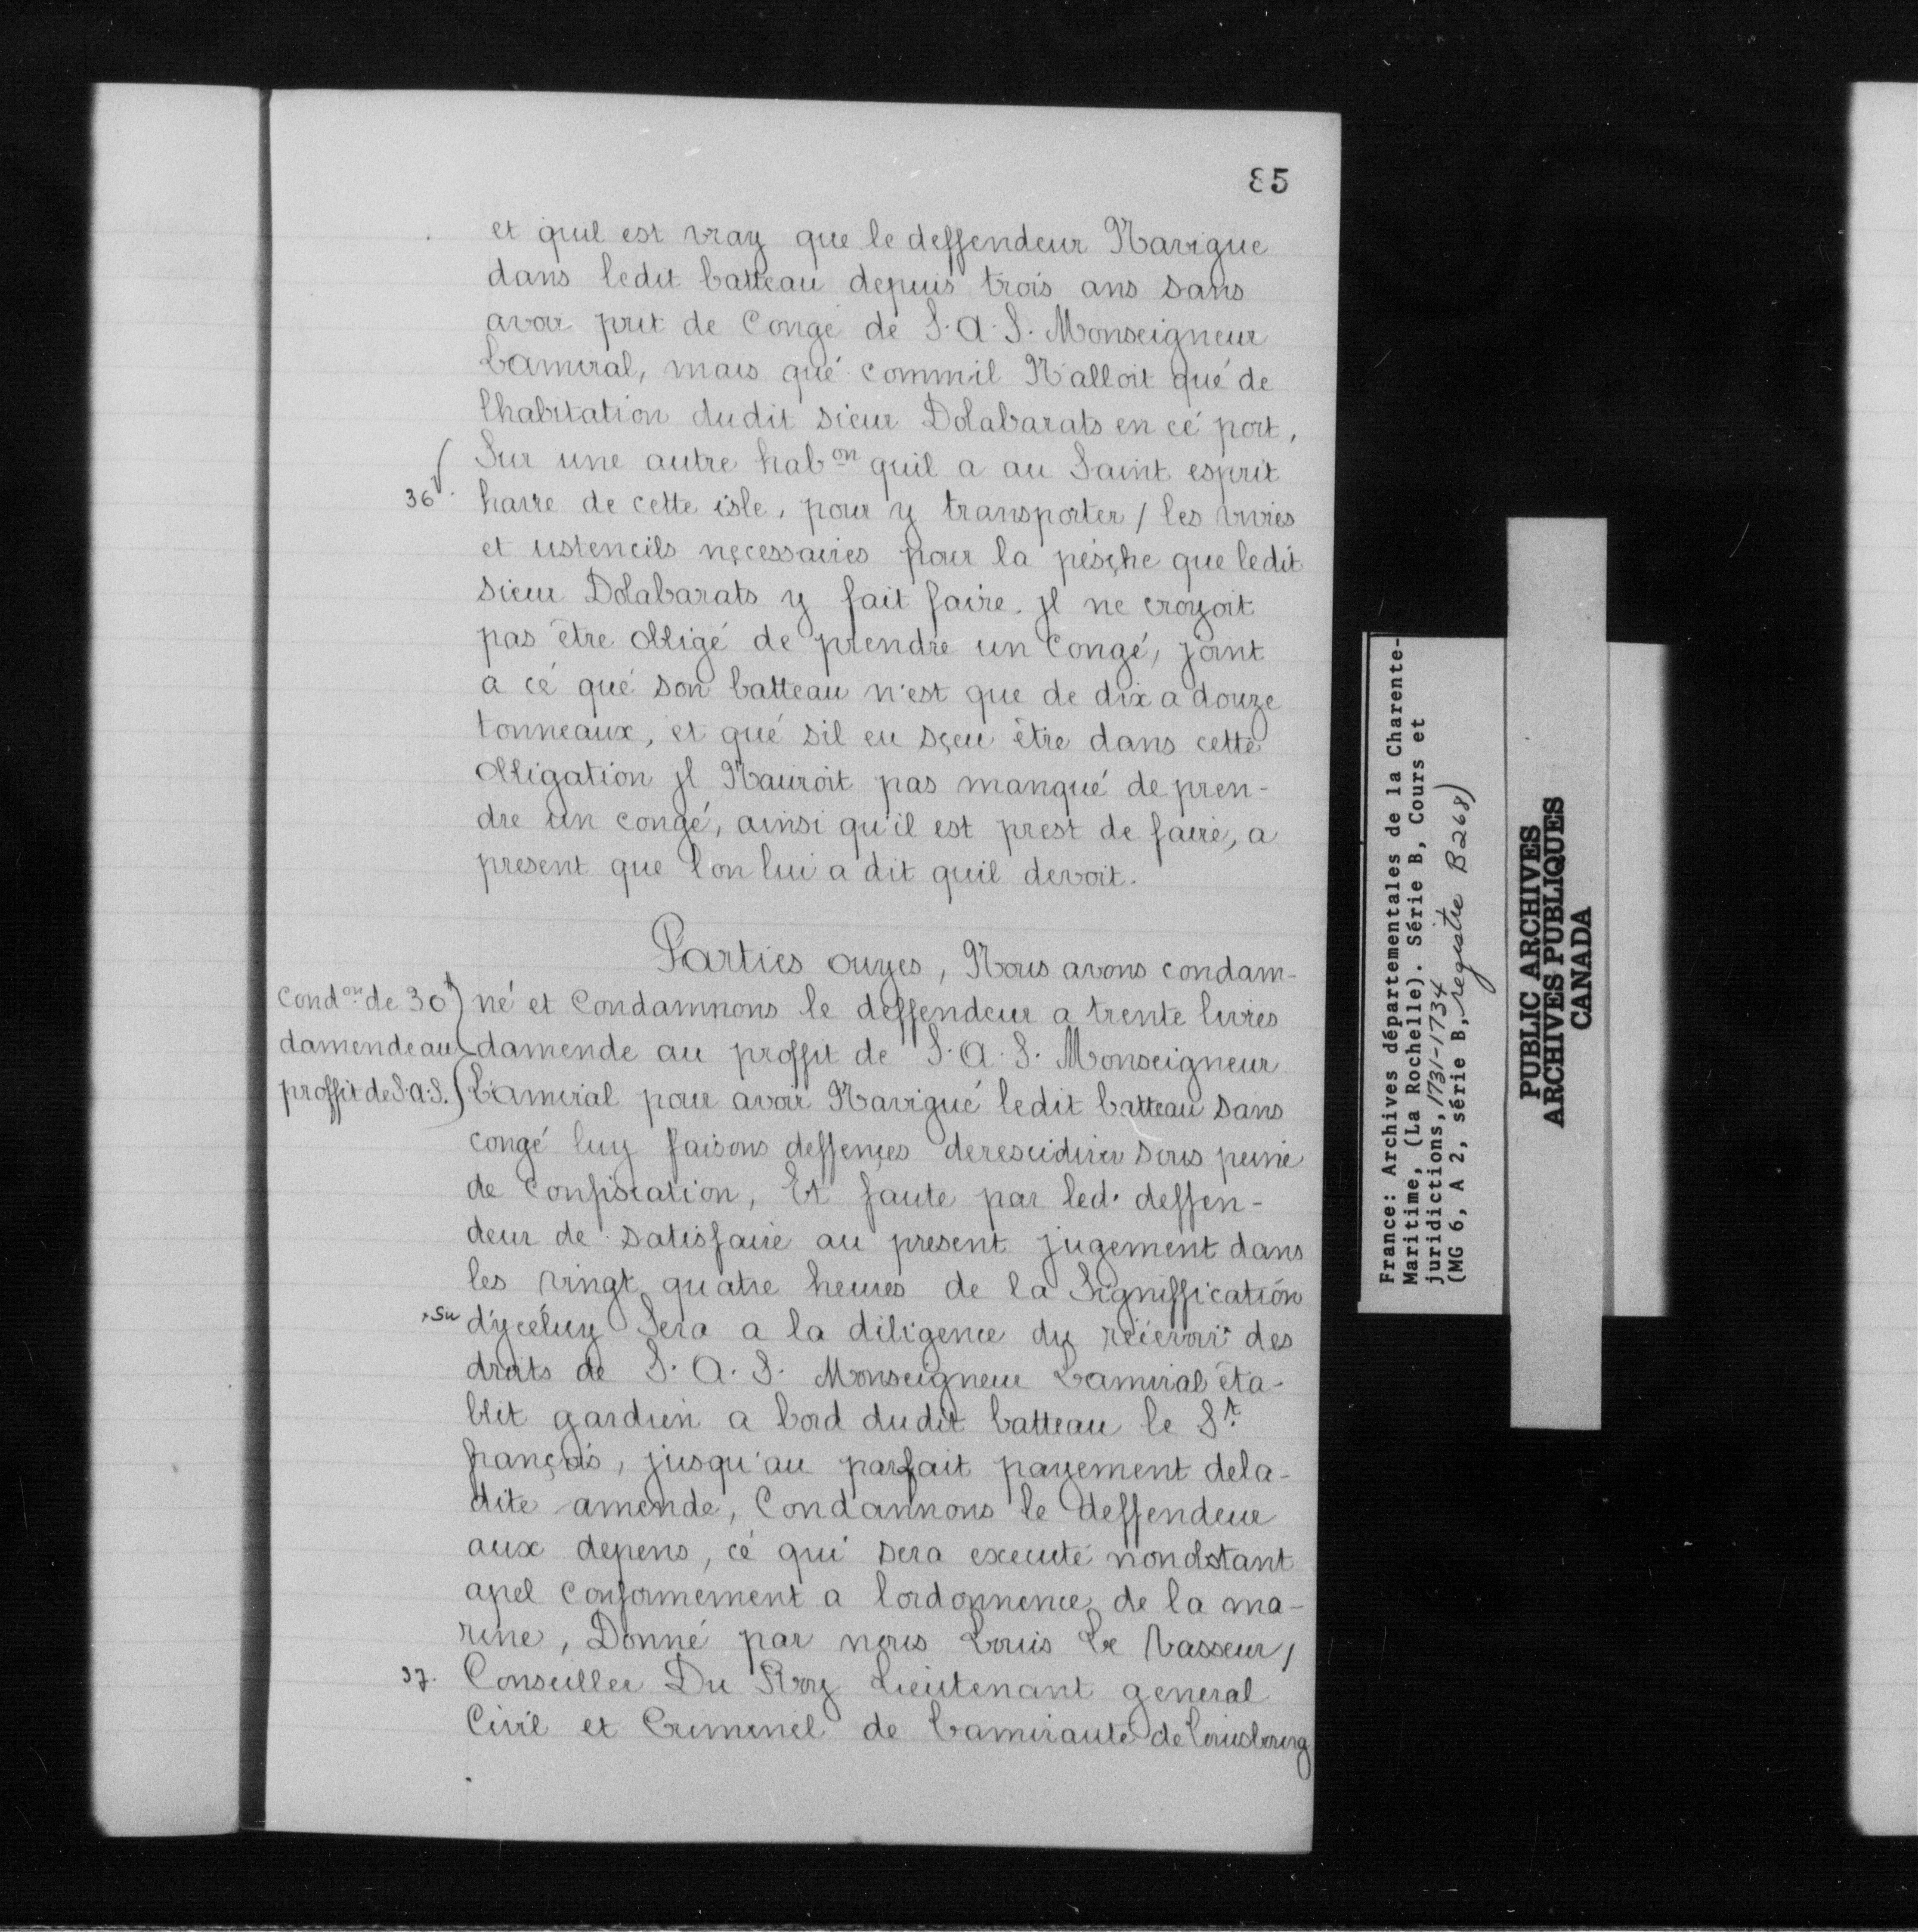 85
et quil est vray que le deffendeur Navigue
dans ledit batteau depuis trois ans sans
avoir prit de Congé de S.A.S. Monseigneur
Lamiral, mais qué commil N'alloit qué de
lhabitation dudit sieur Dolabarats en cé port,
Sur une autre hab on quil a au Saint esprit
36. havre de cette isle, pour y transporter / les vivres
et ustencils neçessaires pour la pesçhe que ledit
sieur Dolabarats y fait faire. jl ne croyoit
pas être obligé de prendre un Congé, joint
a cé qué son batteau n'est que de dix a douze
tonneaux, et qué sil eu sçeu être dans cette
obligation jl Nauroit pas manqué de pren-
dre un congé, ainsi qu'il est prest de faire, a
present que l'on lui a dit quil devoit.
Parties ouyes, Nous avons condam-
cond on de 30 # né et Condamnons le deffendeur a trente livres
damende au damende au proffit de S.A.S. Monseigneur
proffit de S.A.S. Lamiral pour avoir Navigué ledit batteau sans
congé luy faisons deffençes derescidiver sous peine
de Confiscation, Et faute par led. deffen-
deur de satisfaire au present jugement dans
les vingt quatre heures de la Signiffication
d'ycéluy Sera a la diligence du reçevoir des
droits de S.A.S. Monseigneur Lamiral éta-
blit gardien a bord dudit batteau le St.
françois, jusqu'au parfait payement dela-
dite amende, Condannons le deffendeur
aux depens, cé qui sera executé nonobstant
apel conformement a lordonnence de la ma-
rine, Donné par nous Louis Le Vasseur /
37. Conseiller Du Roy Lieutenant general
Civil et Criminel de Lamirauté de Louisbourg
France: Archives départementales de la Charente-
Maritime, (La Rochelle). Série B, Cours et
juridictions, 1731-1734
(MG 6, A 2, série B, registre B268)
PUBLIC ARCHIVES
ARCHIVES PUBLIQUES
CANADA